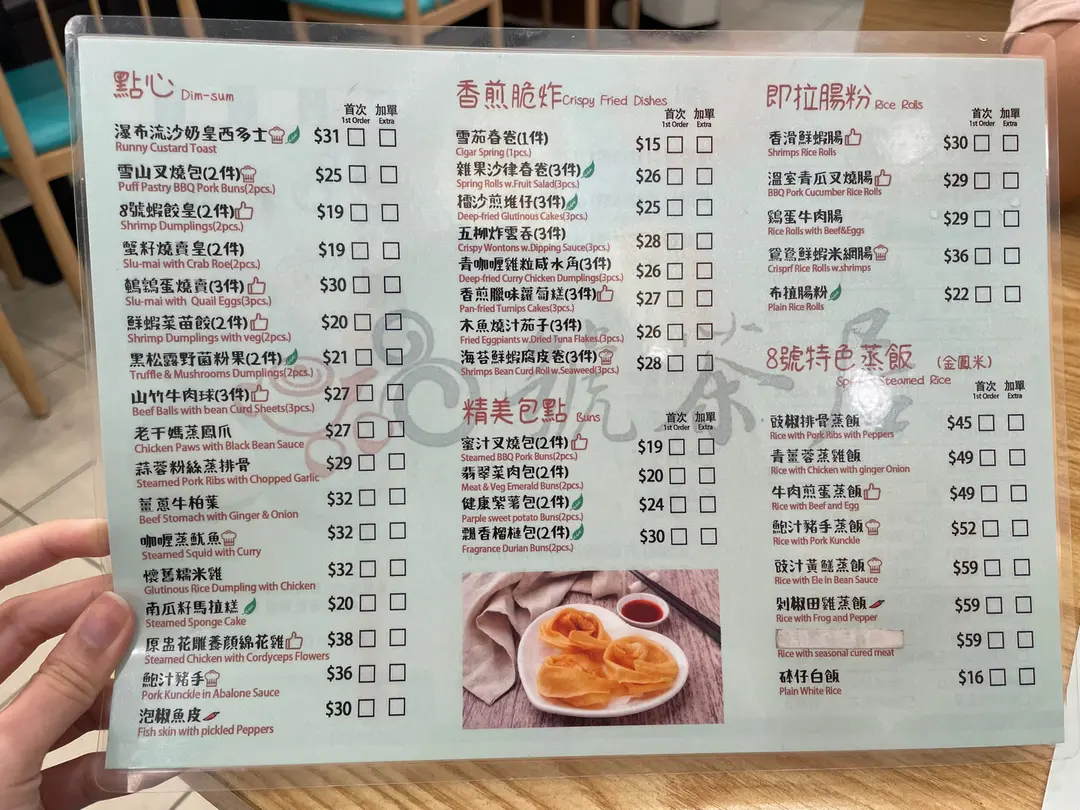 點心 Dim-sum
首次 加單
1st Order Extra
瀑布流沙奶皇西多士 $31
Runny Custard Toast
雪山叉燒包(2件) $25
Puff Pastry BBQ Pork Buns(2pcs.)
8號蝦餃皇(2件) $19
Shrimp Dumplings(2pcs.)
蟹籽燒賣皇(2件) $19
Slu-mai with Crab Roe(2pcs.)
鵪鶉蛋燒賣(3件) $30
Slu-mai with Quail Eggs(3pcs.)
鮮蝦菜苗餃(2件) $20
Shrimp Dumplings with veg(2pcs.)
黑松露野菌粉果(2件) $21
Truffle & Mushrooms Dumplings(2pcs.)
山竹牛肉球(3件) $27
Beef Balls with bean Curd Sheets(3pcs.)
老干媽蒸鳳爪 $27
Chicken Paws with Black Bean Sauce
蒜蓉粉絲蒸排骨 $29
Steamed Pork Ribs with Chopped Garlic
薑蔥牛柏葉 $32
Beef Stomach with Ginger & Onion
咖喱蒸魷魚 $32
Steamed Squid with Curry
懷舊糯米雞 $32
Glutinous Rice Dumpling with Chicken
南瓜籽馬拉糕 $20
Steamed Sponge Cake
原盅花雕養顏綿花雞 $38
Steamed Chicken with Cordyceps Flowers
鮑汁豬手 $36
Pork Kunckle in Abalone Sauce
泡椒魚皮 $30
Fish skin with pickled Peppers
香煎脆炸 Crispy Fried Dishes
首次 加單
1st Order Extra
雪茄春卷(1件) $15
Cigar Spring (1pcs.)
雜果沙律春卷(3件) $26
Spring Rolls w.Fruit Salad(3pcs.)
擂沙煎堆仔(3件) $25
Deep-fried Glutinous Cakes(3pcs.)
五柳炸雲吞(3件) $28
Crispy Wontons w.Dipping Sauce(3pcs.)
青咖喱雞粒咸水角(3件) $26
Deep-fried Curry Chicken Dumplings(3pcs.)
香煎臘味蘿蔔糕(3件) $27
Pan-fried Turnips Cakes(3pcs.)
木魚燒汁茄子(3件) $26
Fried Eggpiants w.Dried Tuna Flakes.(3pcs.)
海苔鮮蝦腐皮卷(3件) $28
Shrimps Bean Curd Roll w.Seaweed(3pcs.)
精美包點 Buns
首次 加單
1st Order Extra
蜜汁叉燒包(2件) $19
Steamed BBQ Pork Buns(2pcs.)
翡翠菜肉包(2件) $20
Meat & Veg Emerald Buns(2pcs.)
健康紫薯包(2件) $24
Parple sweet potato Buns(2pcs.)
飄香榴槤包(2件) $30
Fragrance Durian Buns(2pcs.)
即拉腸粉 Rice Rolls
首次 加單
1st Order Extra
香滑鮮蝦腸 $30
Shrimps Rice Rolls
溫室青瓜叉燒腸 $29
BBQ Pork Cucumber Rice Rolls
鷄蛋牛肉腸 $29
Rice Rolls with Beef&Eggs
鴛鴦鮮蝦米網腸 $36
Crisprf Rice Rolls w.shrimps
布拉腸粉 $22
Plain Rice Rolls
8號特色蒸飯 (金鳳米)
Steamed Rice
首次 加單
1st Order Extra
豉椒排骨蒸飯 $45
Rice with Pork Ribs with Peppers
青薑蓉蒸雞飯 $49
Rice with Chicken with ginger Onion
牛肉煎蛋蒸飯 $49
Rice with Beef and Egg
鮑汁豬手蒸飯 $52
Rice with Pork Kunckle
豉汁黃鱔蒸飯 $59
Rice with Ele in Bean Sauce
剁椒田雞蒸飯 $59
Rice with Frog and Pepper
$59
Rice with seasonal cured meat
砵仔白飯 $16
Plain White Rice
8號茶居